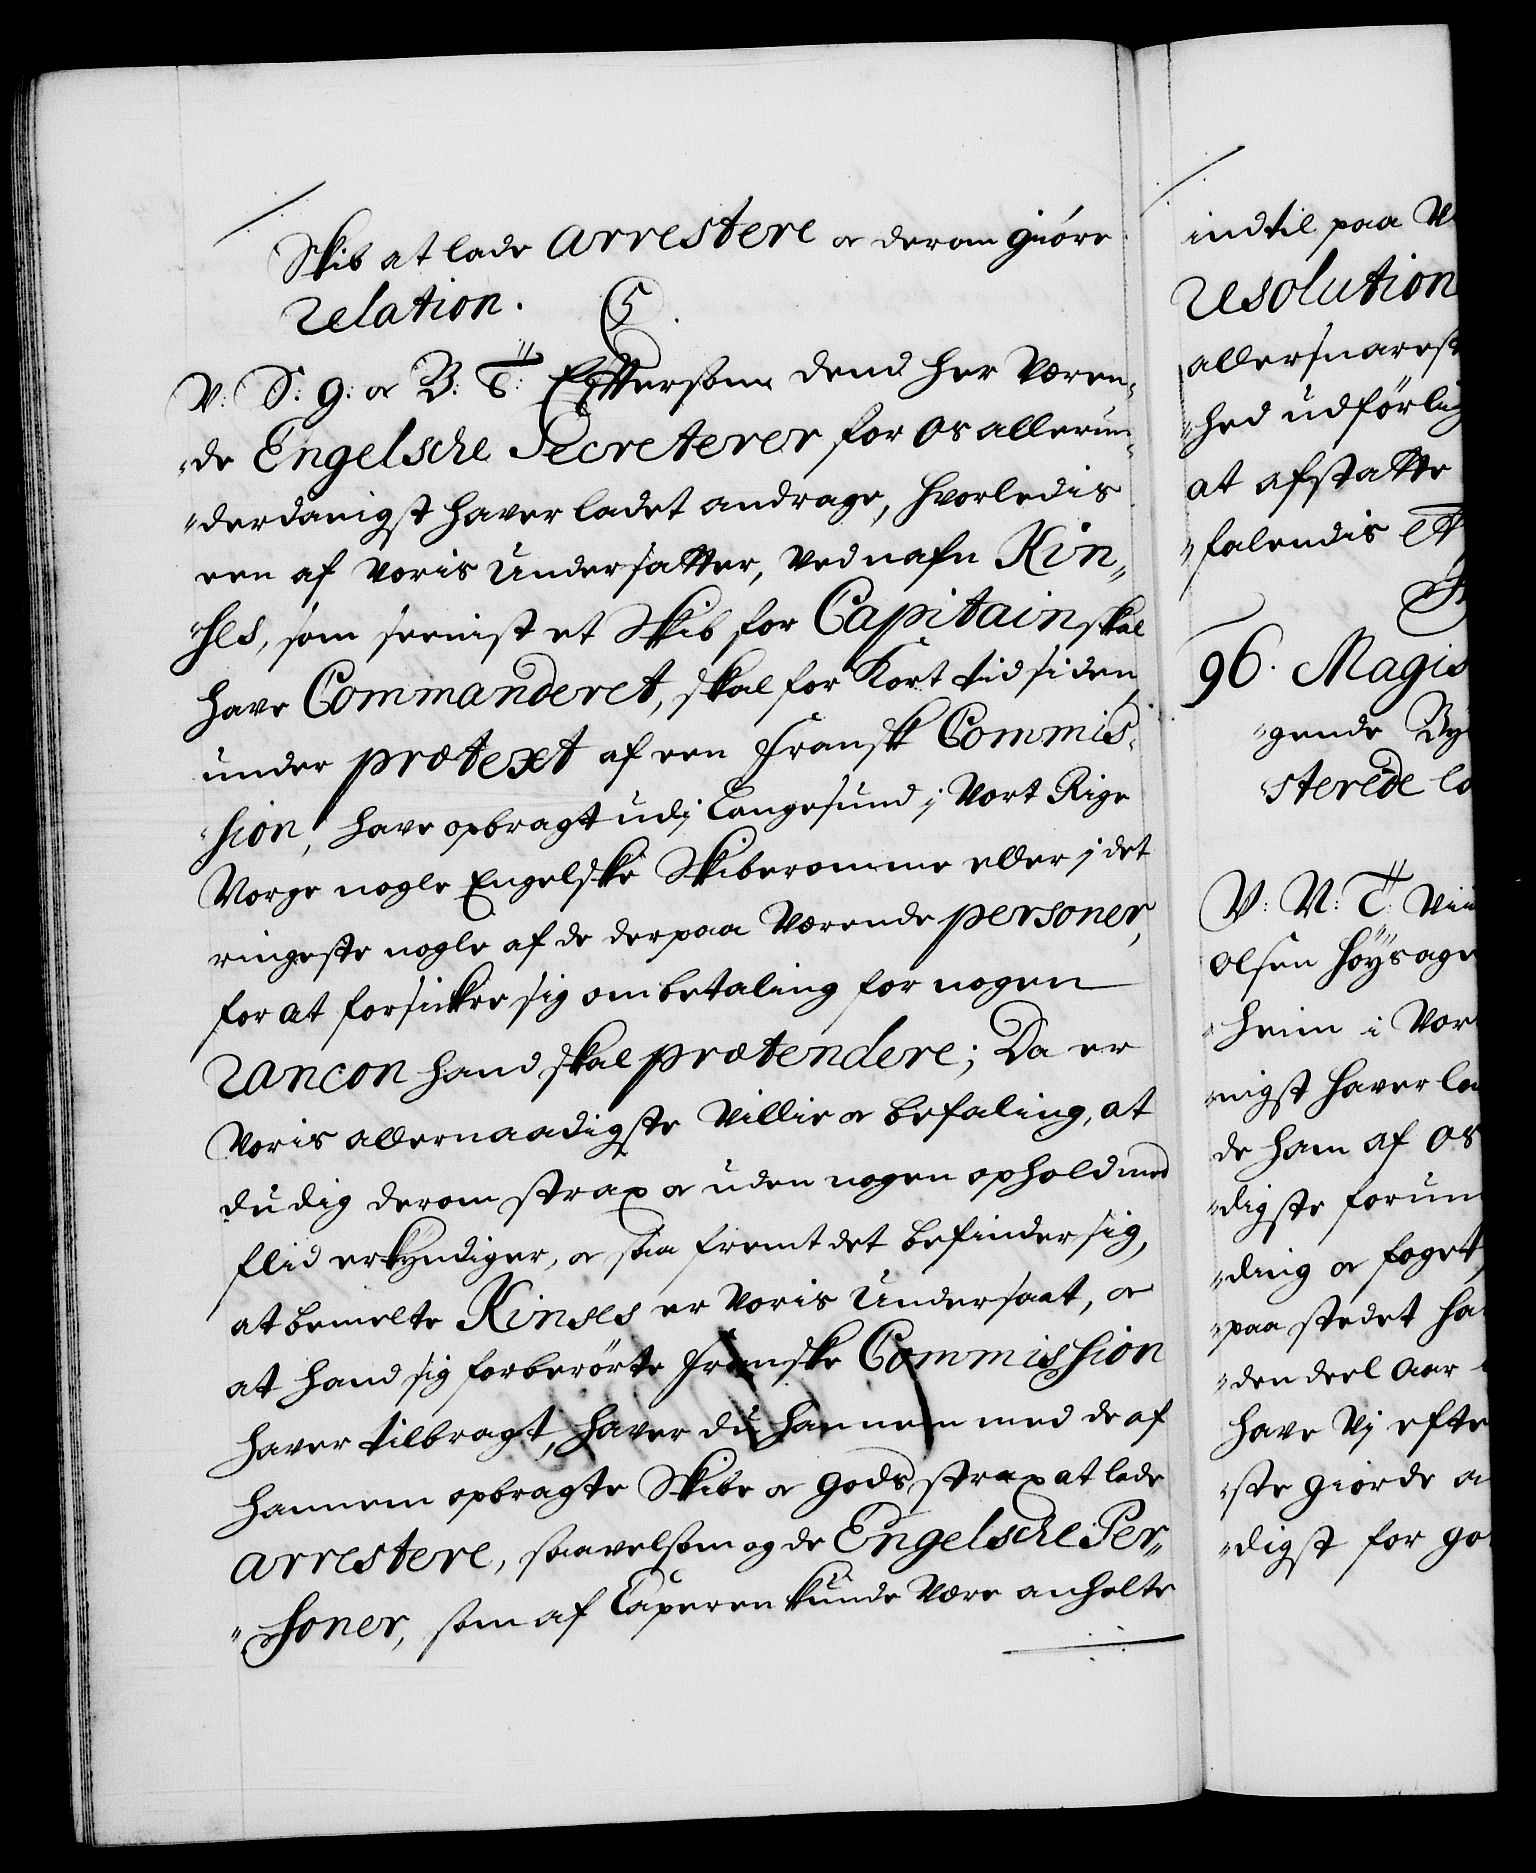 Skib at lade arrestere oc derom giöre
relation.
V: S: G: oc B: T: Eftersom dend her Væren„
„de Engelsche Secreterer for os allerun„
„derdanigst haver ladet andrage, hvorledis
een af Voris Undersatter, Ved nafn Kin„
„ses, som seenist et Skib for Capitain skal
have Commanderet, skal for Kort tid siden,
under prætext af een Fransk Commis„
„sion, have opbragt udj Langesund j Vort Rige
Norge nogle Engelske Skiberomme eller j det
ringeste nogle af de derpaa Værende personer,
for at forsickre sig om betaling for nogen
rancon hand skal prætendere; Da er
Voris allernaadigste Villie oc befaling, at
du dig derom strax oc uden nogen ophold med
flid erkyndiger, oc saa fremt det befinder sig,
at bemelte Kinses er Voris Undersaat, oc
at hand sig forberörte Franske Commission
haver tilbragt, haver du hannem med de af
hannem opbragte Skibe oc Gods strax at lade
arrestere, saavelsom og de Engelsche Per„
„soner, som af Caperen kunde Være anholte
indtil paa
resolution
allersnarest
„hed udförlig
at afstatte
„falendis
96. Magis
„gende By
sterede
V: N: T: Vii
Olsen Höysager
„heim i Vor
„nigst haver la
de ham af os
„digste forun
„ding oc foget,
„paa stedet ha
„den deel Aar
have Vj efte
„ste giorde a
„digst for go